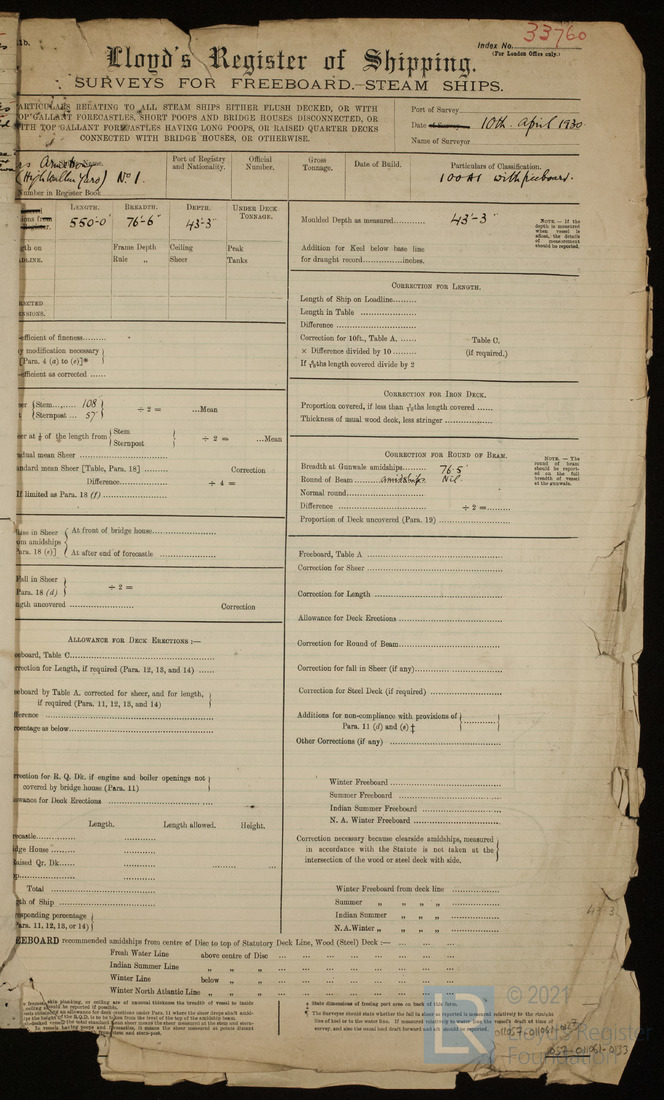 1b.
33760
Index No.
(For London Office only.)
Lloyd's Register of Shipping.
SURVEYS FOR FREEBOARD.—STEAM SHIPS.
ARTICULARS RELATING TO ALL STEAM SHIPS EITHER FLUSH DECKED, OR WITH
TOP GALLANT FORECASTLES, SHORT POOPS AND BRIDGE HOUSES DISCONNECTED, OR
WITH TOP GALLANT FORECASTLES HAVING LONG POOPS, OR RAISED QUARTER DECKS
CONNECTED WITH BRIDGE HOUSES, OR OTHERWISE.
Port of Survey
Date of Survey 10th April 1930
Name of Surveyor
Name.
No 1.
Number in Register Book
Port of Registry
and Nationality.
Official
Number.
Gross
Tonnage.
Date of Build.
Particulars of Classification.
100A1 with freeboard.
LENGTH. BREADTH. DEPTH. UNDER DECK
TONNAGE.
550'-0" 76'-6" 43'-3"
Frame Depth Ceiling Peak
Rule „ Sheer Tanks
Moulded Depth as measured 43'-3"
Addition for Keel below base line
for draught record inches.
NOTE.—If the
depth is measured
when vessel is
afloat, the details
of measurement
should be reported.
efficient of fineness
modification necessary
[Para. 4 (a) to (e)]*
efficient as corrected
Stem 108
Sternpost 57
÷ 2 = Mean
of the length from
Stem
Sternpost
÷ 2 = Mean
dual mean Sheer
andard mean Sheer [Table, Para. 18] Correction
Difference ÷ 4 =
If limited as Para. 18 (f)
Rise in Sheer
om amidships
Para. 18 (e)]
At front of bridge house
At after end of forecastle
Fall in Sheer
Para. 18 (d)
÷ 2 =
ngth uncovered Correction
ALLOWANCE FOR DECK ERECTIONS :—
eeboard, Table C
rrection for Length, if required (Para. 12, 13, and 14)
eeboard by Table A. corrected for sheer, and for length,
if required (Para. 11, 12, 13, and 14)
ifference
rcentage as below
rrection for R. Q. Dk. if engine and boiler openings not
covered by bridge house (Para. 11)
lowance for Deck Erections
Length. Length allowed. Height.
recastle
idge House
aised Qr. Dk.
Total
gth of Ship
responding percentage
Para. 11, 12, 13, or 14)
CORRECTION FOR LENGTH.
Length of Ship on Loadline
Length in Table
Difference
Correction for 10ft., Table A. Table C.
× Difference divided by 10 (if required.)
If 6/10ths length covered divide by 2
CORRECTION FOR IRON DECK.
Proportion covered, if less than 7/10ths length covered
Thickness of usual wood deck, less stringer
CORRECTION FOR ROUND OF BEAM.
Breadth at Gunwale amidships 76.5
Round of Beam amidships Nil
Normal round
Difference ÷ 2 =
Proportion of Deck uncovered (Para. 19)
NOTE.—The
round of beam
should be report-
ed on the full
breadth of vessel
at the gunwale.
Freeboard, Table A
Correction for Sheer
Correction for Length
Allowance for Deck Erections
Correction for Round of Beam
Correction for fall in Sheer (if any)
Correction for Steel Deck (if required)
Additions for non-compliance with provisions of
Para. 11 (d) and (e) ‡
Other Corrections (if any)
Winter Freeboard
Summer Freeboard
Indian Summer Freeboard
N. A. Winter Freeboard
Correction necessary because clearside amidships, measured
in accordance with the Statute is not taken at the
intersection of the wood or steel deck with side.
Winter Freeboard from deck line
Summer „ „ „ „
Indian Summer „ „ „
N.A. Winter „ „ „ „
EEBOARD recommended amidships from centre of Disc to top of Statutory Deck Line, Wood (Steel) Deck :—
Fresh Water Line above centre of Disc
Indian Summer Line „ „ „
Winter Line below „ „
Winter North Atlantic Line „ „ „
‡ State dimensions of freeing port area on back of this form.
The Surveyors should state whether the fall in sheer is reported
© 2021
Lloyd's Register
Foundation